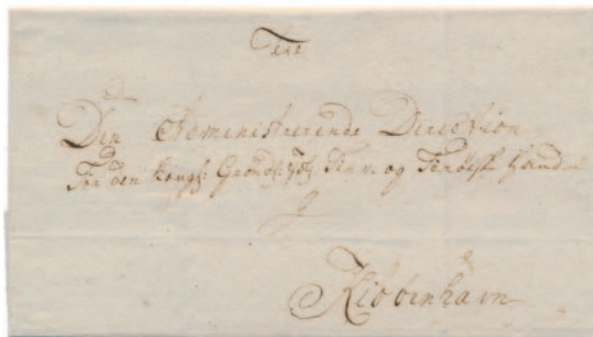 Till
Den Administrerende Direction
For den kongl: Grønl: Isl: Finm: og Færøeske Handel
I
Kiøbenhavn